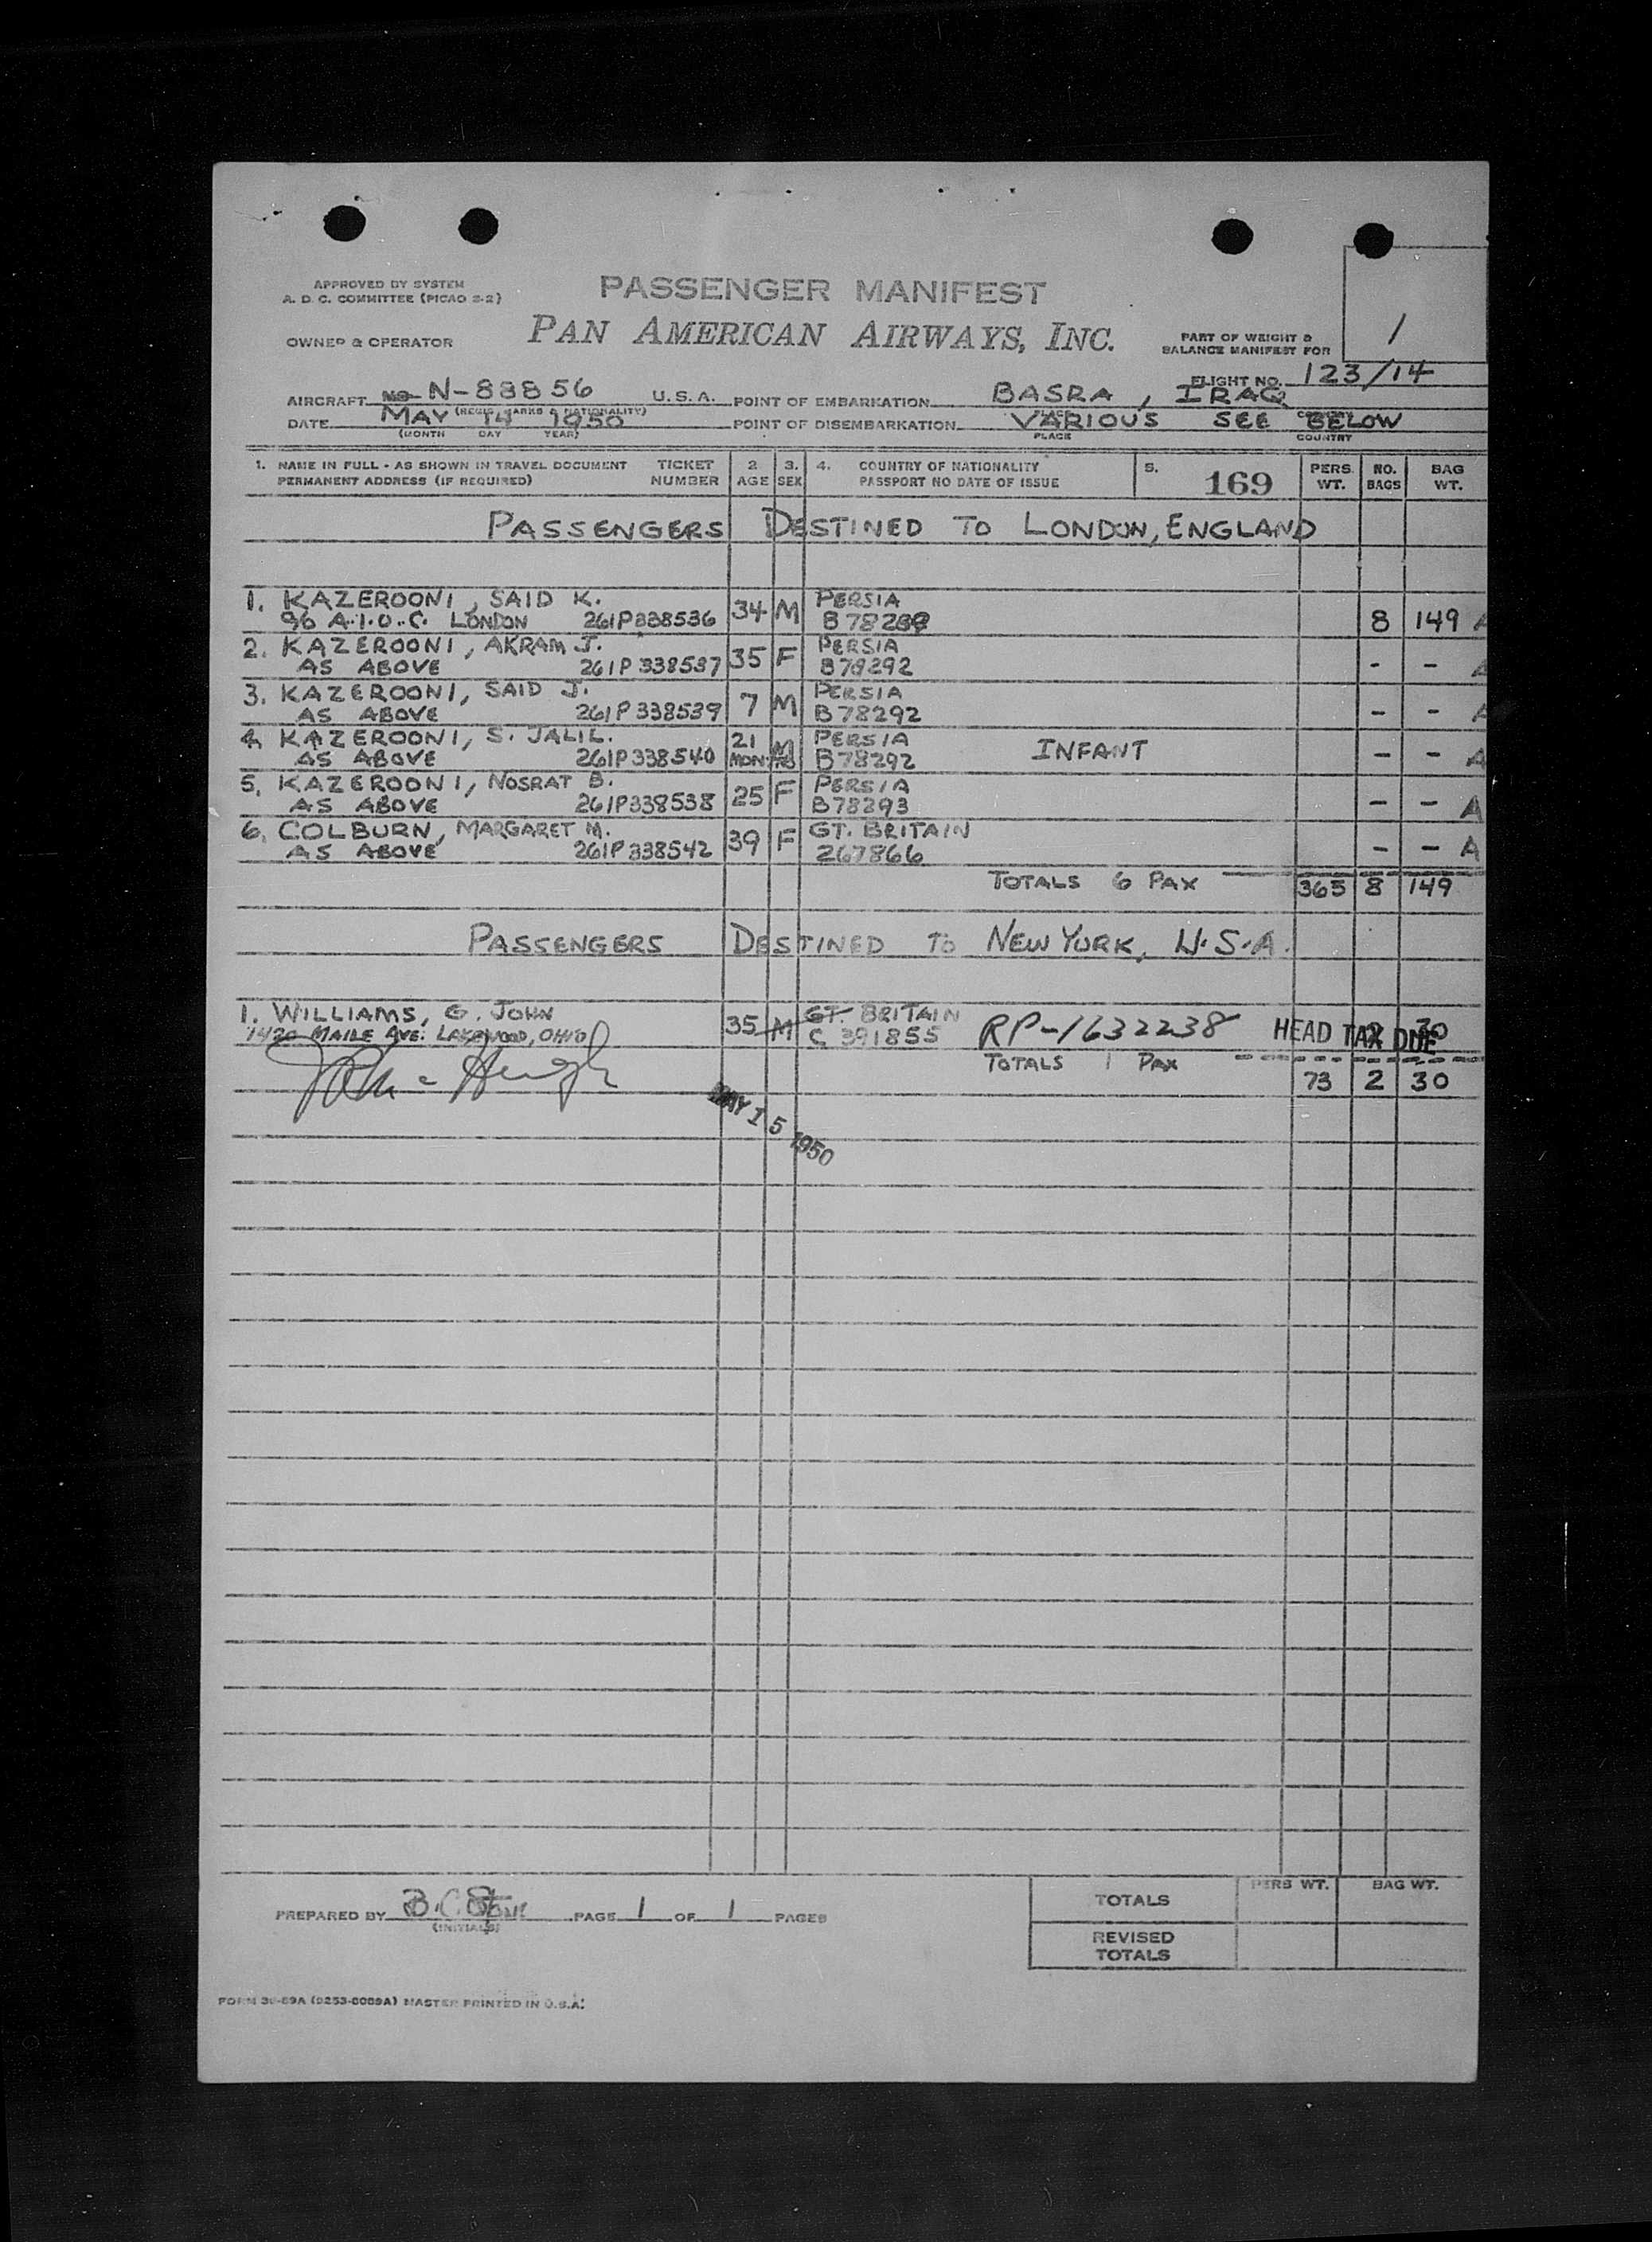 APPROVED BY SYSTEM
A. D. C. COMMITTEE (PICAO S-2)
PASSENGER MANIFEST
OWNER & OPERATOR
PAN AMERICAN AIRWAYS, INC.
PART OF WEIGHT &
BALANCE MANIFEST FOR
1
FLIGHT NO. 123/14
AIRCRAFT N-88856 U.S.A. POINT OF EMBARKATION BASRA, IRAQ
(REGIS. MARKS & NATIONALITY)
DATE MAY 14 1950 POINT OF DISEMBARKATION VARIOUS SEE BELOW
(MONTH DAY YEAR) PLACE COUNTRY
1. NAME IN FULL - AS SHOWN IN TRAVEL DOCUMENT TICKET 2 3. 4. COUNTRY OF NATIONALITY 5. 169 PERS. NO. BAG
PERMANENT ADDRESS (IF REQUIRED) NUMBER AGE SEX PASSPORT NO DATE OF ISSUE WT. BAGS WT.
PASSENGERS DESTINED TO LONDON, ENGLAND
1. KAZEROONI, SAID K. 34 M PERSIA
% A.I.O.C. LONDON 261P338536 8 149 A
2. KAZEROONI, AKRAM J. 35 F PERSIA
AS ABOVE 261P338537 B78292 - - A
3. KAZEROONI, SAID J. 7 M PERSIA
AS ABOVE 261P338539 B78292 - - A
4. KAZEROONI, S. JALIL. 21 M PERSIA INFANT
AS ABOVE 261P338540 MONTHS B78292 - - A
5. KAZEROONI, NOSRAT B. 25 F PERSIA
AS ABOVE 261P338538 B78293 - - A
6. COLBURN, MARGARET M. 39 F GT. BRITAIN
AS ABOVE 261P338542 267866 - - A
TOTALS 6 PAX 365 8 149
PASSENGERS DESTINED TO NEW YORK, U.S.A.
1. WILLIAMS, G. JOHN 35 M GT. BRITAIN
1420 MAILE AVE. LAKEWOOD, OHIO C 391855 RP-1632238 HEAD TAX DUE 2 30
TOTALS 1 PAX
73 2 30
MAY 15 1950
PREPARED BY PAGE 1 OF 1 PAGES
(INITIALS)
PERS WT. BAG WT.
TOTALS
REVISED
TOTALS
FORM 30-89A (9253-0089A) MASTER PRINTED IN U.S.A.